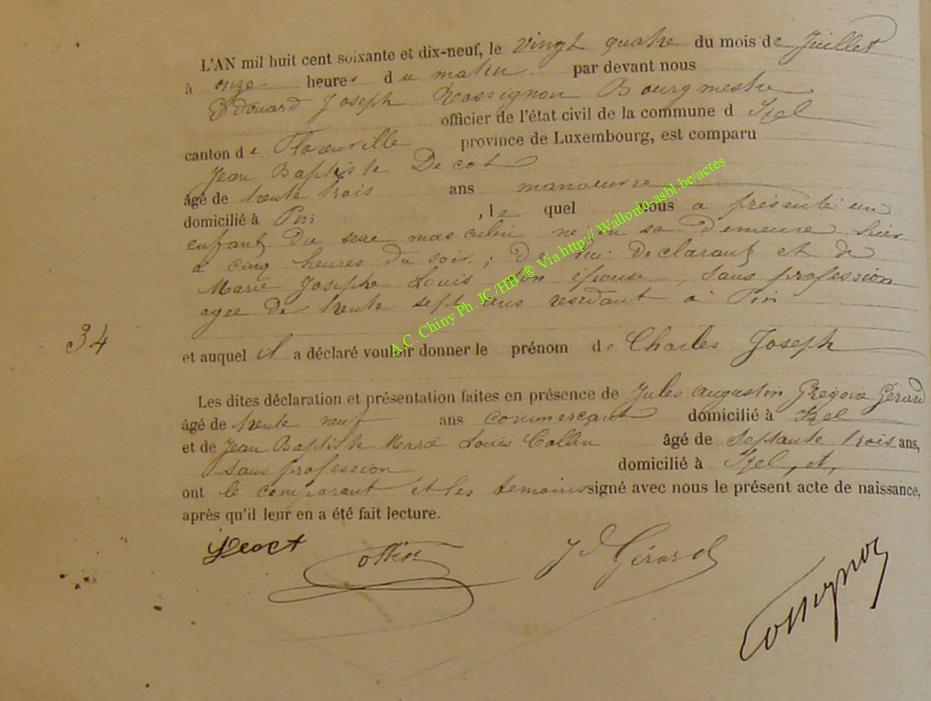 L'AN mil huit cent soixante et dix-neuf, le vingt quatre du mois de Juillet
à onze heures du matin par devant nous
Edouard Joseph Rossignon Bourgmestre
officier de l'état civil de la commune d Izel
canton de Florenville province de Luxembourg, est comparu
Jean Baptiste Decot
âgé de trente trois ans manoeuvre
domicilié à Pin , le quel nous a présenté un
enfant du sexe masculin né en sa demeure hier
à cinq heures du soir ; de lui déclarant et de
Marie Josephe Louis son épouse, sans profession
agée de trente sept ans residant à Pin
34
et auquel il a déclaré vouloir donner le prénom de Charles Joseph
Les dites déclaration et présentation faites en présence de Jules Augustin Gregoire Gérard
âgé de trente neuf ans commerçant domicilié à Izel
et de Jean Baptiste Marie Louis Collin âgé de septante trois ans,
sans profession domicilié à Izel, et,
ont le comparant et les temoins signé avec nous le présent acte de naissance,
après qu'il leur en a été fait lecture.
J Gérard
Rossignon
A.C. Chiny Ph. JC /HB ® Via http:// Wallonia-asbl.be/actes